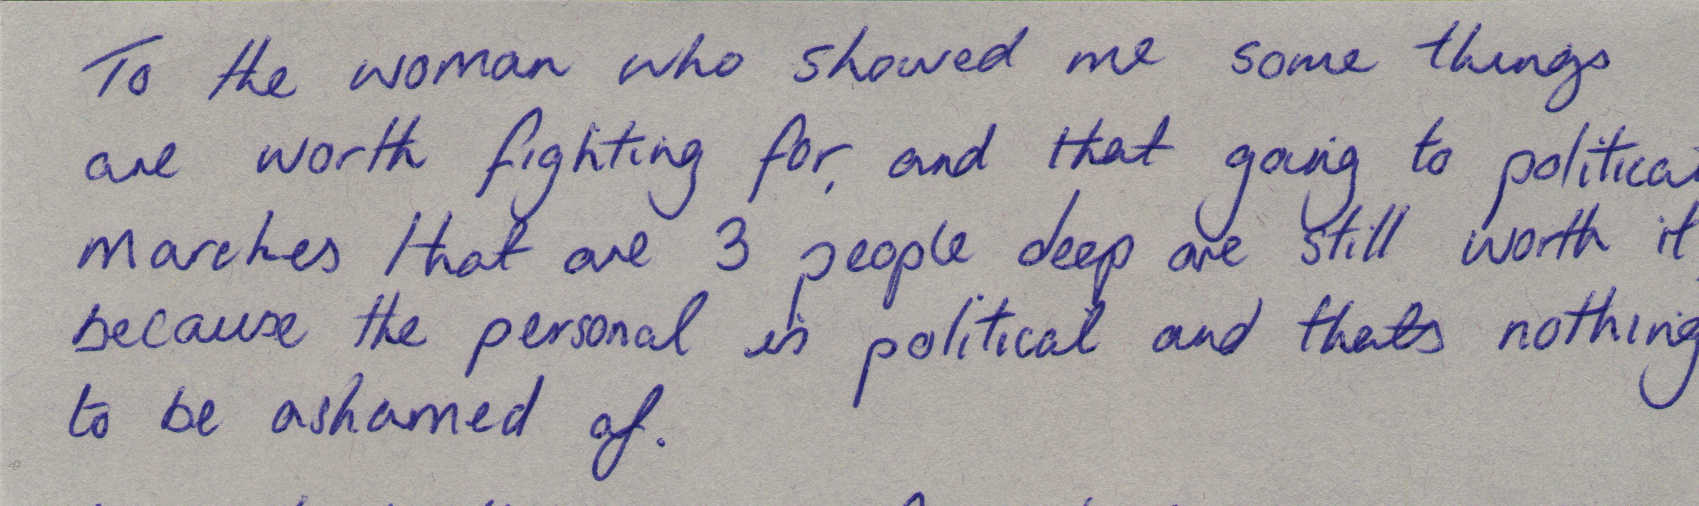 To the woman who showed me some things
are worth fighting for, and that going to political
marches that are 3 people deep are still worth it
because the personal is political and thats nothing
to be ashamed of.